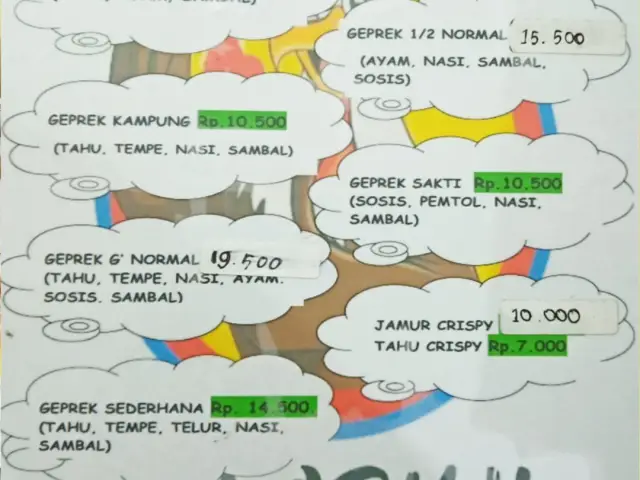 GEPREK 1/2 NORMAL 15.500
(AYAM, NASI, SAMBAL,
SOSIS)
GEPREK KAMPUNG Rp.10.500
(TAHU, TEMPE, NASI, SAMBAL)
GEPREK SAKTI Rp.10.500
(SOSIS, PEMTOL, NASI,
SAMBAL)
GEPREK G' NORMAL 19.500
(TAHU, TEMPE, NASI, AYAM.
SOSIS. SAMBAL)
JAMUR CRISPY 10.000
TAHU CRISPY Rp.7.000
GEPREK SEDERHANA Rp. 14.500.
(TAHU, TEMPE, TELUR, NASI,
SAMBAL)